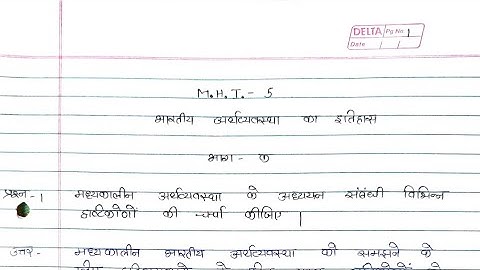 DELTA Pg No. 1
Date / /
M.H.I. - 5
भारतीय अर्थव्यवस्था का इतिहास
भाग - क
प्रश्न - 1 मध्यकालीन अर्थव्यवस्था के अध्ययन संबंधी विभिन्न
दृष्टिकोणों की चर्चा कीजिए |
उत्तर - मध्यकालीन भारतीय अर्थव्यवस्था को समझने के